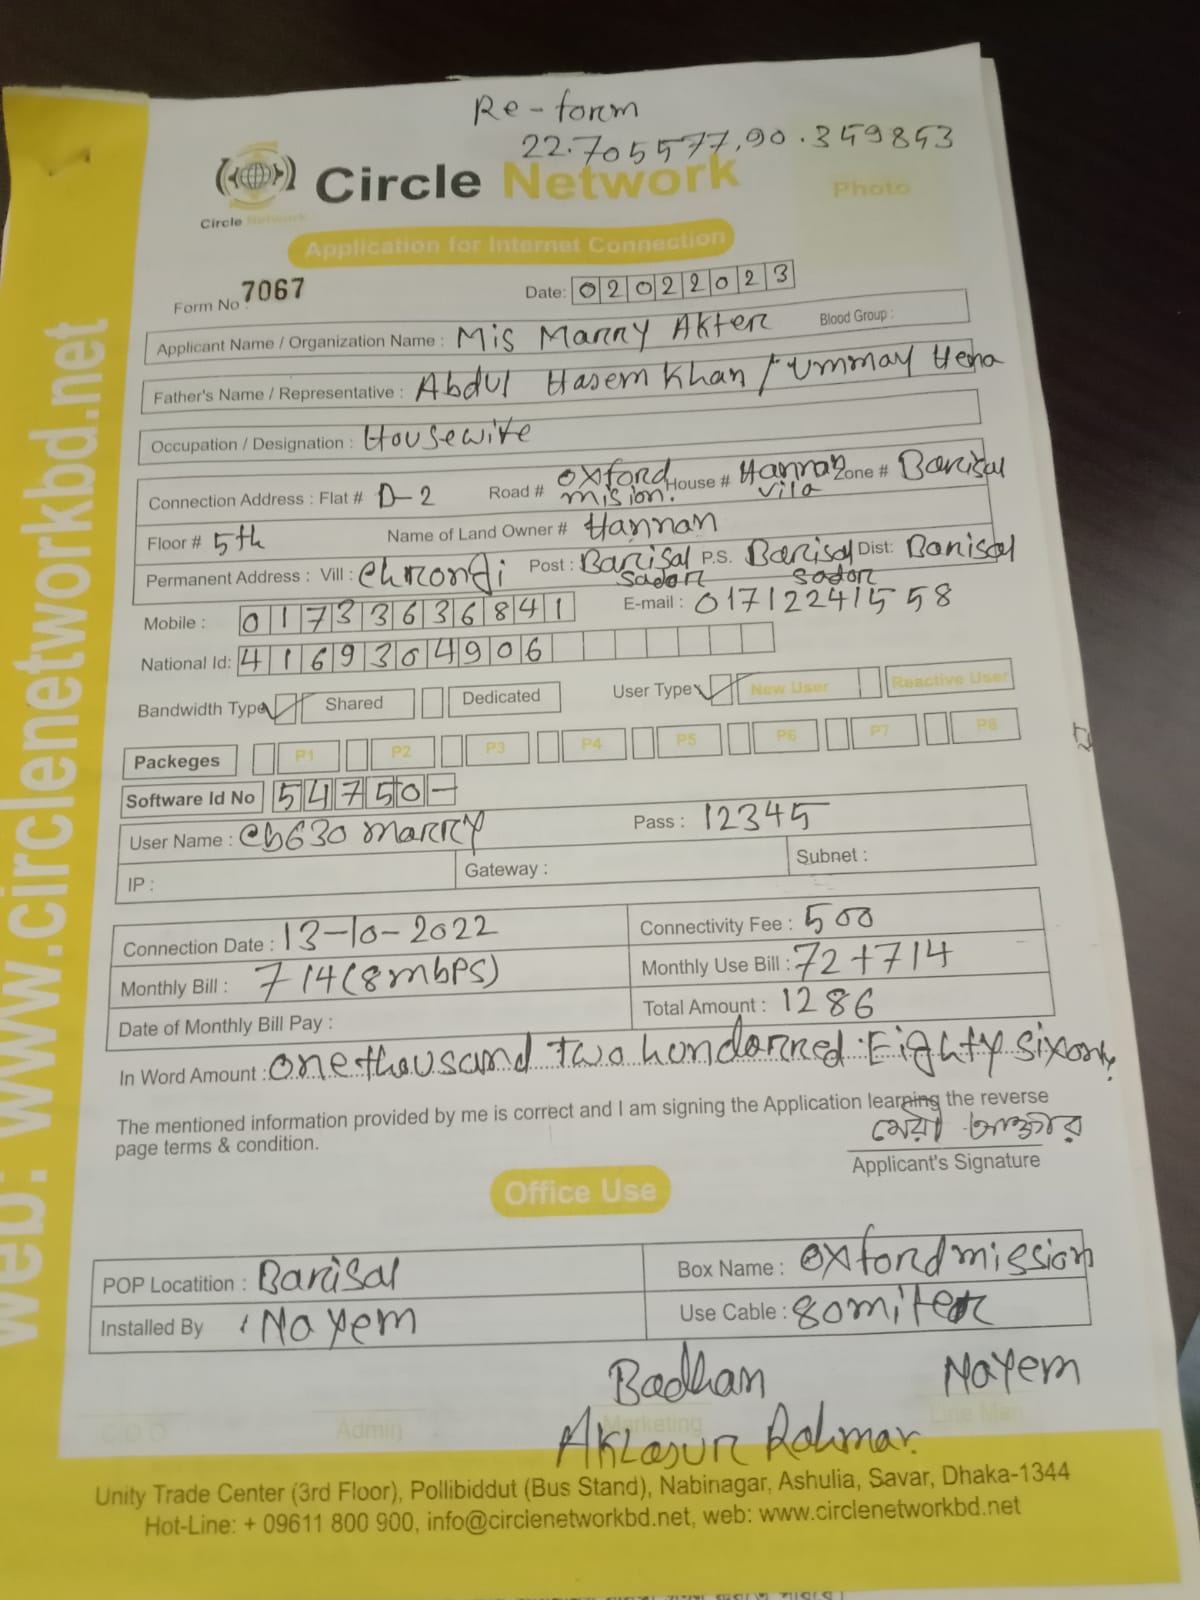 Re-form
22.705577,90.359853
Circle Network
Circle Network
Photo
Application for Internet Connection
Form No 7067 Date: 02022023
Applicant Name / Organization Name : Mis Marry Akter Blood Group :
Father's Name / Representative : Abdul Hasem Khan / Ummay Hena
Occupation / Designation : Housewife
Connection Address : Flat # D-2 Road # oxford mision. House # Hannan vila Zone # Barisal
Floor # 5th Name of Land Owner # Hannan
Permanent Address : Vill : Post : Barisal sador P.S. Barisal sador Dist: Barisal
Mobile : 01733636841 E-mail : 01712241558
National Id: 4169304906
Bandwidth Type Shared Dedicated User Type New User Reactive User
Packeges P1 P2 P3 P4 P5 P6 P7 P8
Software Id No 54750-
User Name : cb630 marry Pass : 12345
IP : Gateway : Subnet :
Connection Date : 13-10-2022 Connectivity Fee : 500
Monthly Bill : 714(8mbps) Monthly Use Bill : 72+714
Date of Monthly Bill Pay : Total Amount : 1286
In Word Amount : one thousand two hondorred Eighty six only.
The mentioned information provided by me is correct and I am signing the Application learning the reverse
page terms & condition.
মেরী আক্তার
Applicant's Signature
Office Use
POP Locatition : Barisal Box Name : oxford mission
Installed By : Nayem Use Cable : 80miter
Badhan Nayem
C.O.O Admin Marketing Line Man
Rahman.
Unity Trade Center (3rd Floor), Pollibiddut (Bus Stand), Nabinagar, Ashulia, Savar, Dhaka-1344
Hot-Line: + 09611 800 900, info@circlenetworkbd.net, web: www.circlenetworkbd.net
web: www.circlenetworkbd.net